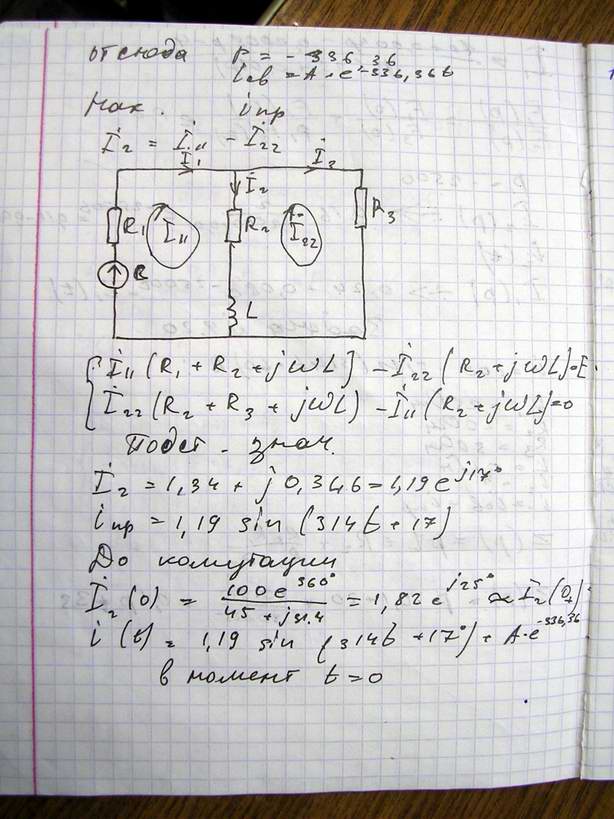 отсюда p = - 336,36
iсв = A · e^-336,36t
Нах. iпр
İ₂ = İ₁₁ - İ₂₂
İ₁
İ₂
İ₂
R₁
İ₁₁
R₂
İ₂₂
R₃
L
İ₁₁ (R₁ + R₂ + jωL) - İ₂₂ (R₂ + jωL) = E
İ₂₂ (R₂ + R₃ + jωL) - İ₁₁ (R₂ + jωL) = 0
Подст. знач.
İ₂ = 1,34 + j 0,346 = 1,19 e^j17°
iпр = 1,19 sin (314t + 17)
До комутации
İ₂ (0) = 100 e^j60° / 45 + j31.4 = 1,82 e^j25° = İ₂(0₊)
i (t) = 1,19 sin (314t + 17°) + A·e^-336,36
в момент t = 0